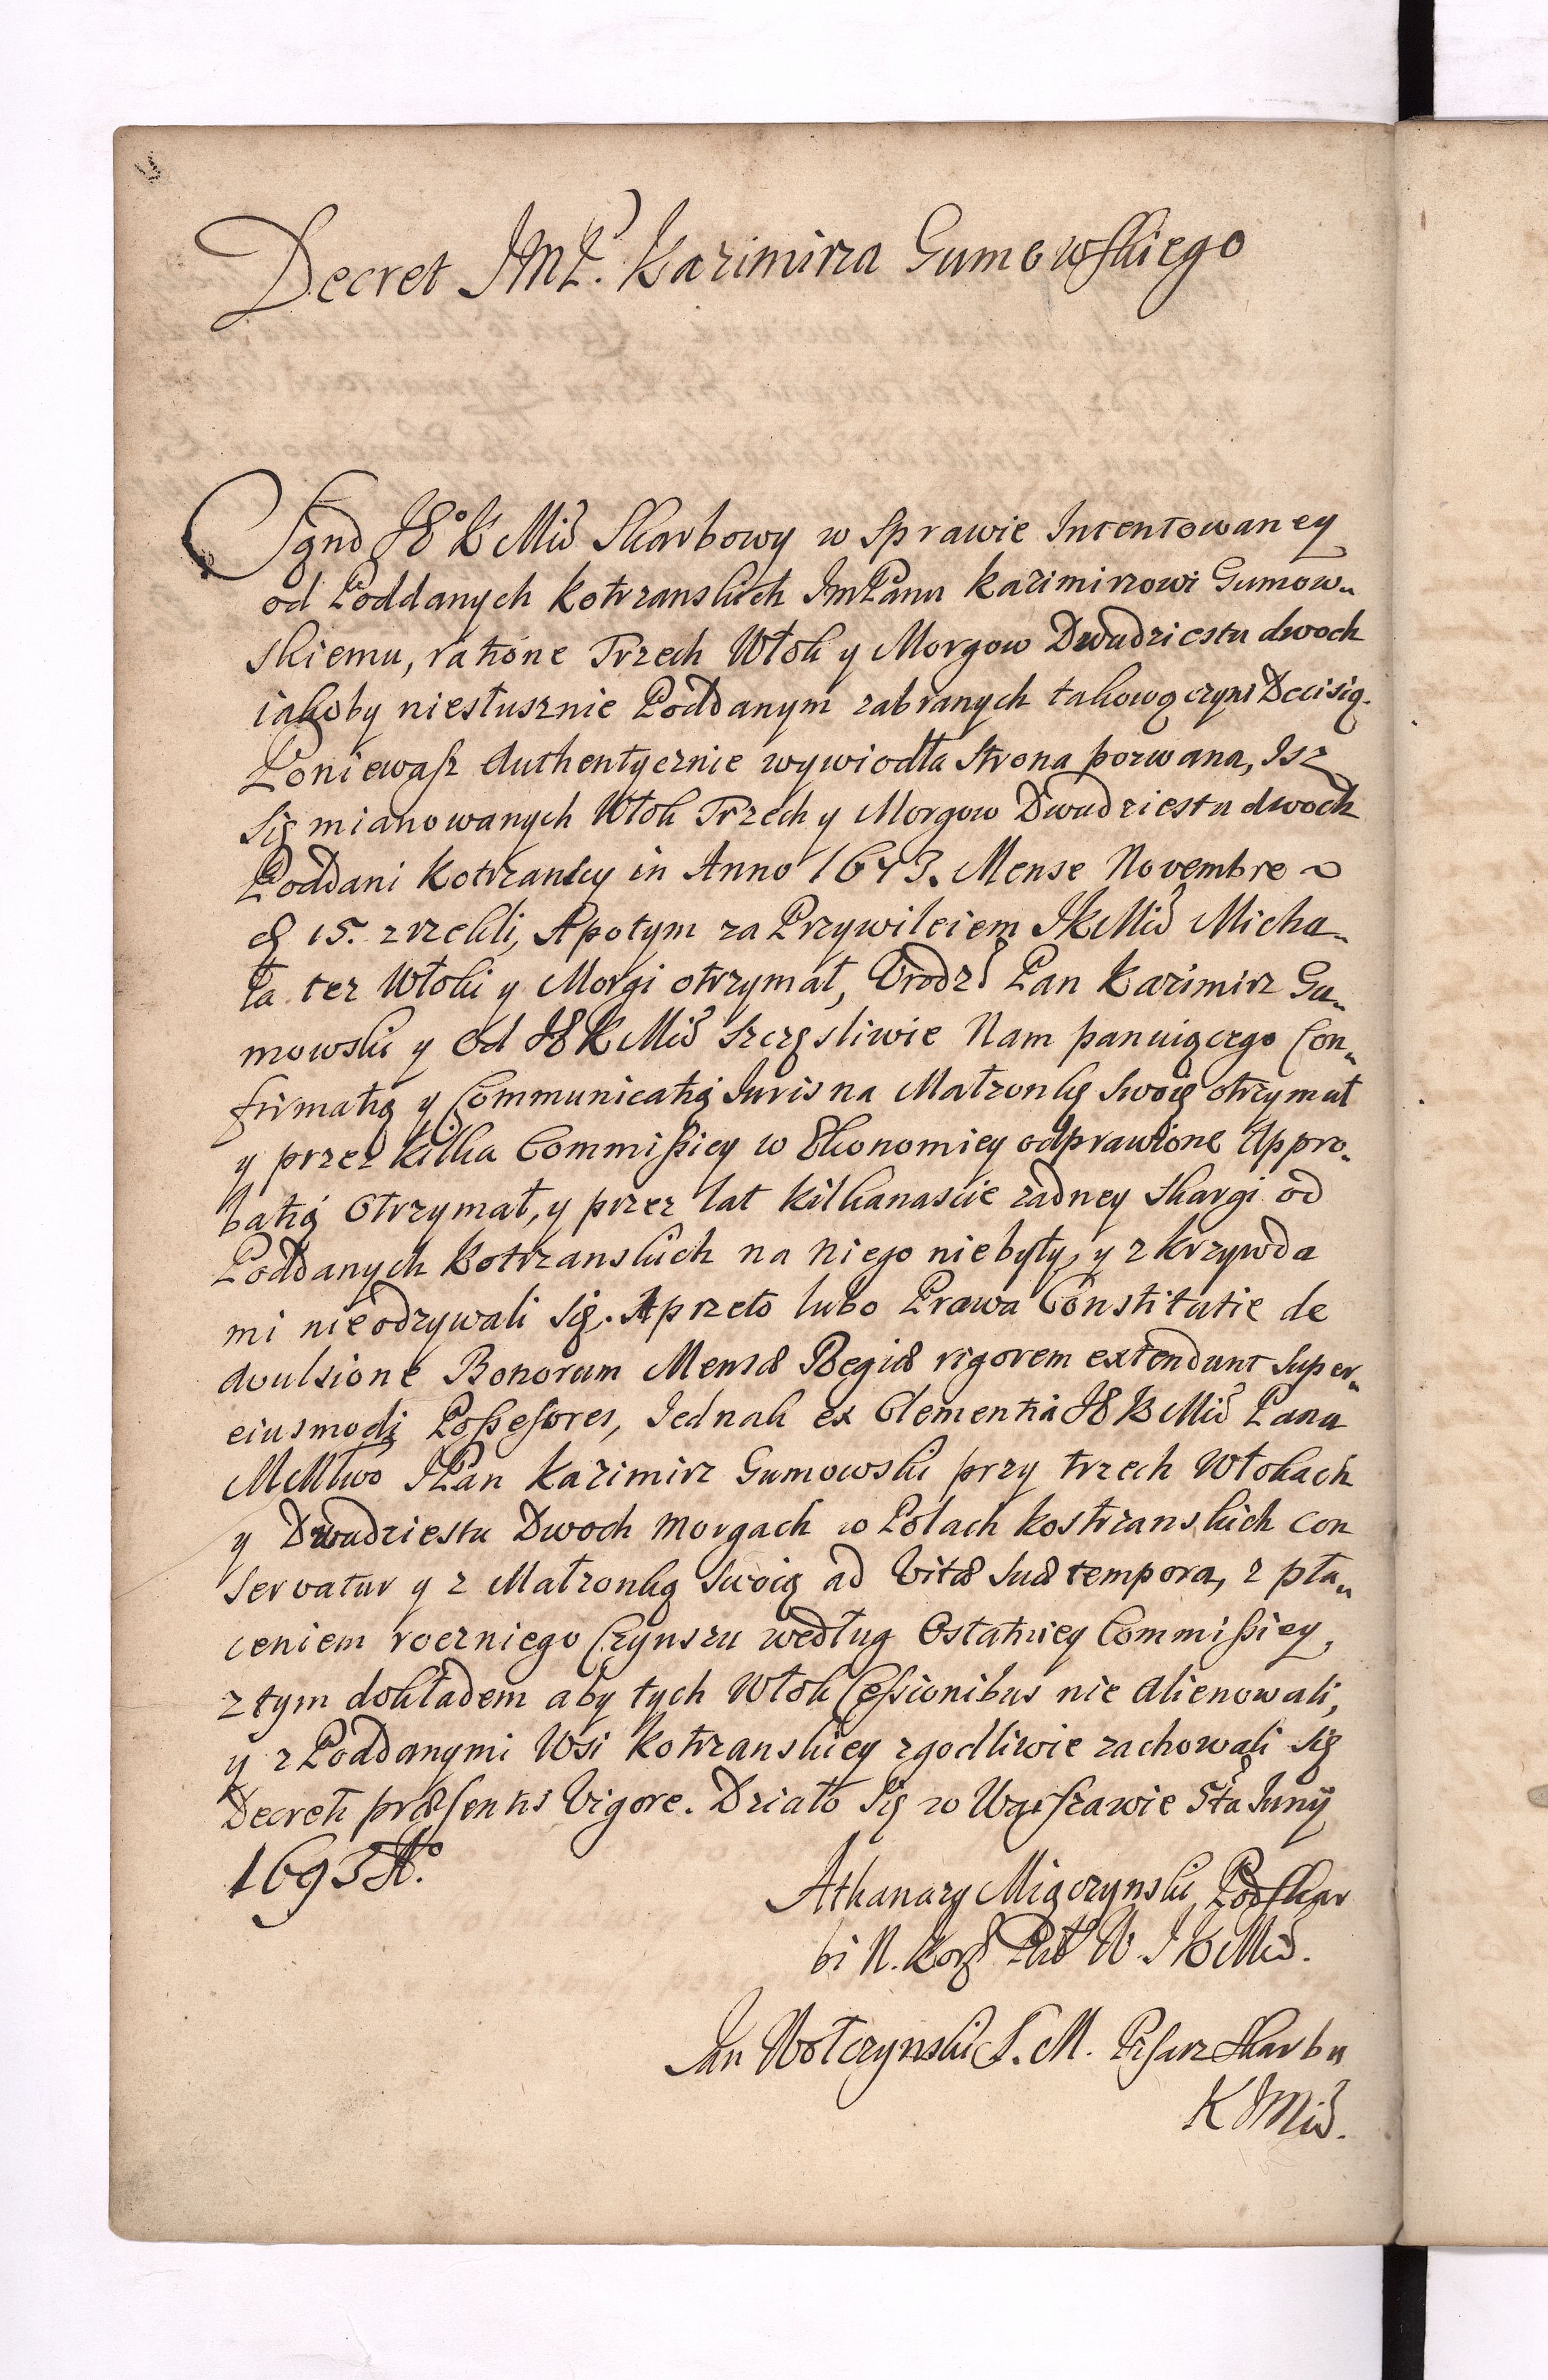 Decret JMP. Kazimirza Gumowskiego
Sąnd J° K Mści Skarbowy w Sprawie Intentowaney
od Poddanych Kotrzanskich Jm Panu Kazimirzowi Gumow-
skiemu, ratione Trzech Włok y Morgow Dwudziestu dwoch
iakoby niesłusznie Poddanym zabranych takową czyni Decisią.
Poniewasz Authentycznie wywiodła Strona pozwana, Isz
Się mianowanych Włok Trzech y Morgow Dwudziestu dwoch
Poddani Kotrzanscy in Anno 1673. Mense Novembre
15. zrzekli, A potym za Przywileiem JKMści Micha-
ła tez Włoki y Morgi otrzymał, Urodz Pan Kazimirz Gu-
mowski y od J K Mści Szczęsliwie Nam panuiącego Con-
firmatią y Communicatią Iuris na Małzonkę Swoię otrzymał
y przez kilka Commissiey w Ekonomiey odprawione Appro-
batią Otrzymał, y przez lat kilkanascie zadney Skargi od
Poddanych Kotrzanskich na niego niebyły, y z krzywda
mi nieodzywali Się. A przeto lubo Prawa Constitutie de
avulsione Bonorum Mensæ Regiæ rigorem extendunt Super
eiusmodi Possessores, Jednak ex Clementia J K Mści Pana
MMłwo JPan Kazimirz Gumowski przy trzech Włokach
y Dwudziestu Dwoch Morgach w Polach Kostrzanskich con
servatur y z Małzonką Swoią ad Vitæ Suæ tempora, z pła-
ceniem roczniego Czynszu według Ostatniey Commissiey,
z tym dokładem aby tych Włok Cessionibus nie Alienowali,
y z Poddanymi Wsi Kotrzanskiey zgodliwie zachowali Się
Decreti præsentis Vigore. Działo Się w Warszawie 5ta Junÿ
1695 A°.
Athanazy Miączynski Podskar
bi N. Kor W. J K Mści.
Jan Wołczynski S. M. Pisarz Skarbu
K J Mści.